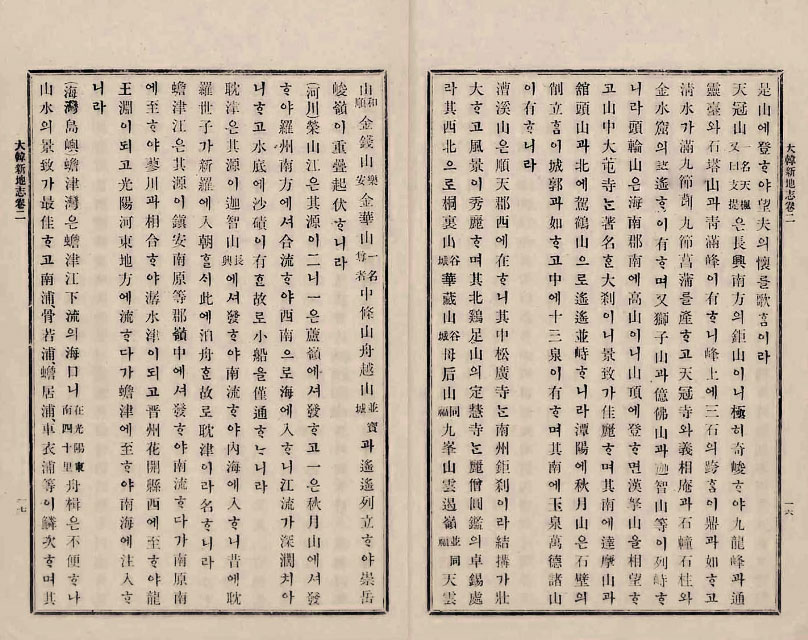 是山에登ᄒᆞ야望夫의懷를歌홈이라
天冠山一名天楓又曰支提은長興南方의鉅山이니極히奇峻ᄒᆞ야九龍峰과通
靈臺와石塔山과靑滿峰이有ᄒᆞ니峰上에三石의跨홈이鼎과如ᄒᆞ고
淸水가滿ᄒᆞ고九節菖蒲를產ᄒᆞ고天冠寺와義相庵과石幢石柱와
金水窟의逍遙홈이有ᄒᆞ며又獅子山과億佛山과迦智山等이列峙ᄒᆞ
니라頭輪山은海南郡南에高山이니山頂에登ᄒᆞ면漢拏山을相望ᄒᆞ
고山中大芚寺ᄂᆞᆫ著名ᄒᆞᆫ大刹이니景致가佳麗ᄒᆞ며其南에達摩山과
館頭山과北에駕鶴山으로遙遙並峙ᄒᆞ니라潭陽에秋月山은石壁의
削立홈이城郭과如ᄒᆞ고中에十三泉이有ᄒᆞ며其南에玉泉萬德諸山
이有ᄒᆞ니라
曹溪山은順天郡西에在ᄒᆞ니其中松廣寺ᄂᆞᆫ南州鉅刹이라結搆가壯
大ᄒᆞ고風景이秀麗ᄒᆞ며其北鷄足山의定慧寺ᄂᆞᆫ麗僧圓鑑의卓錫處
라其西北으로桐裏山谷城華藏山谷城母后山同福九峯山雲過嶺並同福天雲
大韓新地志卷二
一六
山和順金錢山樂安金華山一名尊者中條山舟越山並寶城과遙遙列立ᄒᆞ야崇岳
峻嶺이重疊起伏ᄒᆞ니라
(河川)榮山江은其源이二니一은蘆嶺에셔發ᄒᆞ고一은秋月山에셔發
ᄒᆞ야羅州南方에셔合流ᄒᆞ야西南으로海에入ᄒᆞ니江流가深濶치아
니ᄒᆞ고水底에沙磧이有ᄒᆞᆫ故로小船을僅通ᄒᆞᄂᆞ니라
耽津은其源이迦智山長興에셔發ᄒᆞ야南流ᄒᆞ야內海에入ᄒᆞ니昔에耽
羅世子가新羅에入朝ᄒᆞᆯ시此에泊舟ᄒᆞᆫ故로耽津이라名ᄒᆞ니라
蟾津江은其源이鎭安南原等郡嶺中에셔發ᄒᆞ야南流ᄒᆞ다가南原南
에至ᄒᆞ야蓼川과相合ᄒᆞ야潺水津이되고晋州花開縣西에至ᄒᆞ야龍
王淵이되고光陽河東地方에流ᄒᆞ다가蟾津에至ᄒᆞ야南海에注入ᄒᆞ
니라
(海灣島嶼)蟾津灣은蟾津江下流의海口니在光陽東南四十里舟楫은不便ᄒᆞ나
山水의景致가最佳ᄒᆞ고南浦骨若浦蟾居浦車衣浦等이鱗次ᄒᆞ며其
大韓新地志卷二
一七